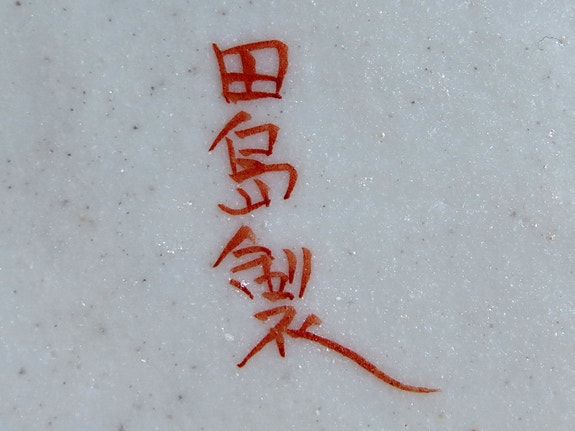 田島製